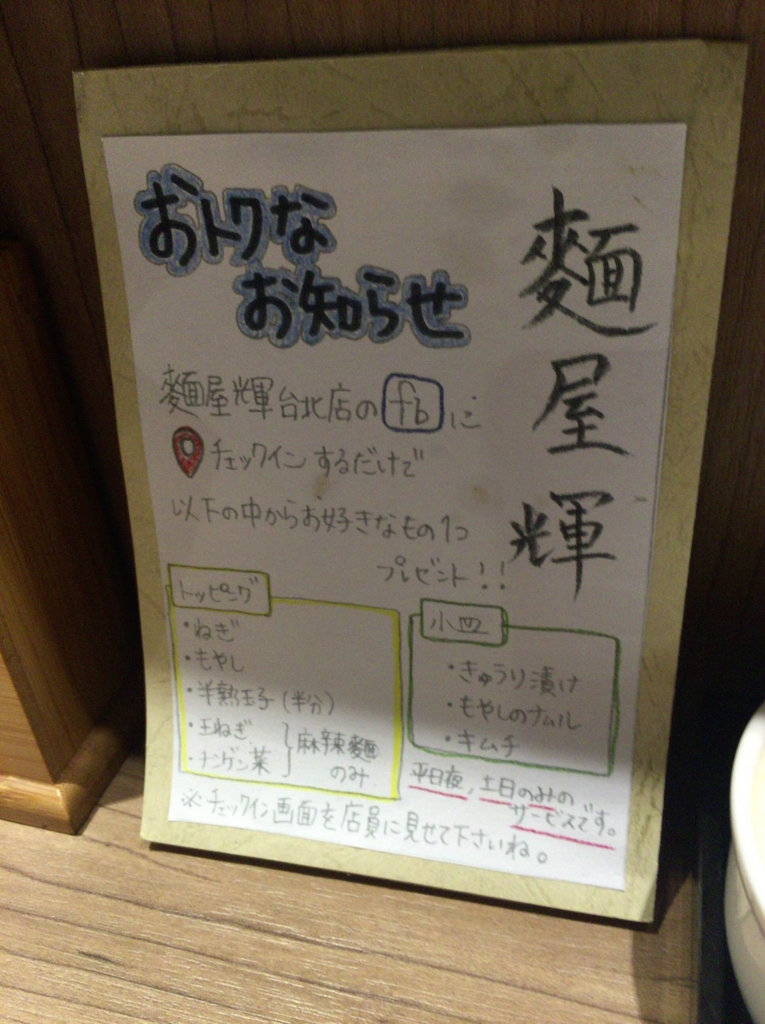 麵屋輝
おトクな
お知らせ
麵屋輝台北店の fb に
チェックインするだけで
以下の中からお好きなもの1つ
プレゼント!!
トッピング
・ねぎ
・もやし
・半熟玉子(半分)
・玉ねぎ
・チンゲン菜
麻辣麵
のみ
小皿
・きゅうり漬け
・もやしのナムル
・キムチ
平日夜,土日のみの
サービスです。
※チェックイン画面を店員に見せて下さいね。